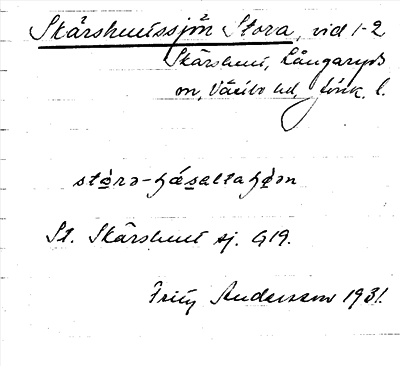 Skärshultssjön Stora, vid 1-2
Skärshult, Långaryds
sn, Västbo hd, Jönk. l.
stòra-ʃæsaltaʃøən
St. Skärshult sj. G19.
Fritz Andersson 1931.